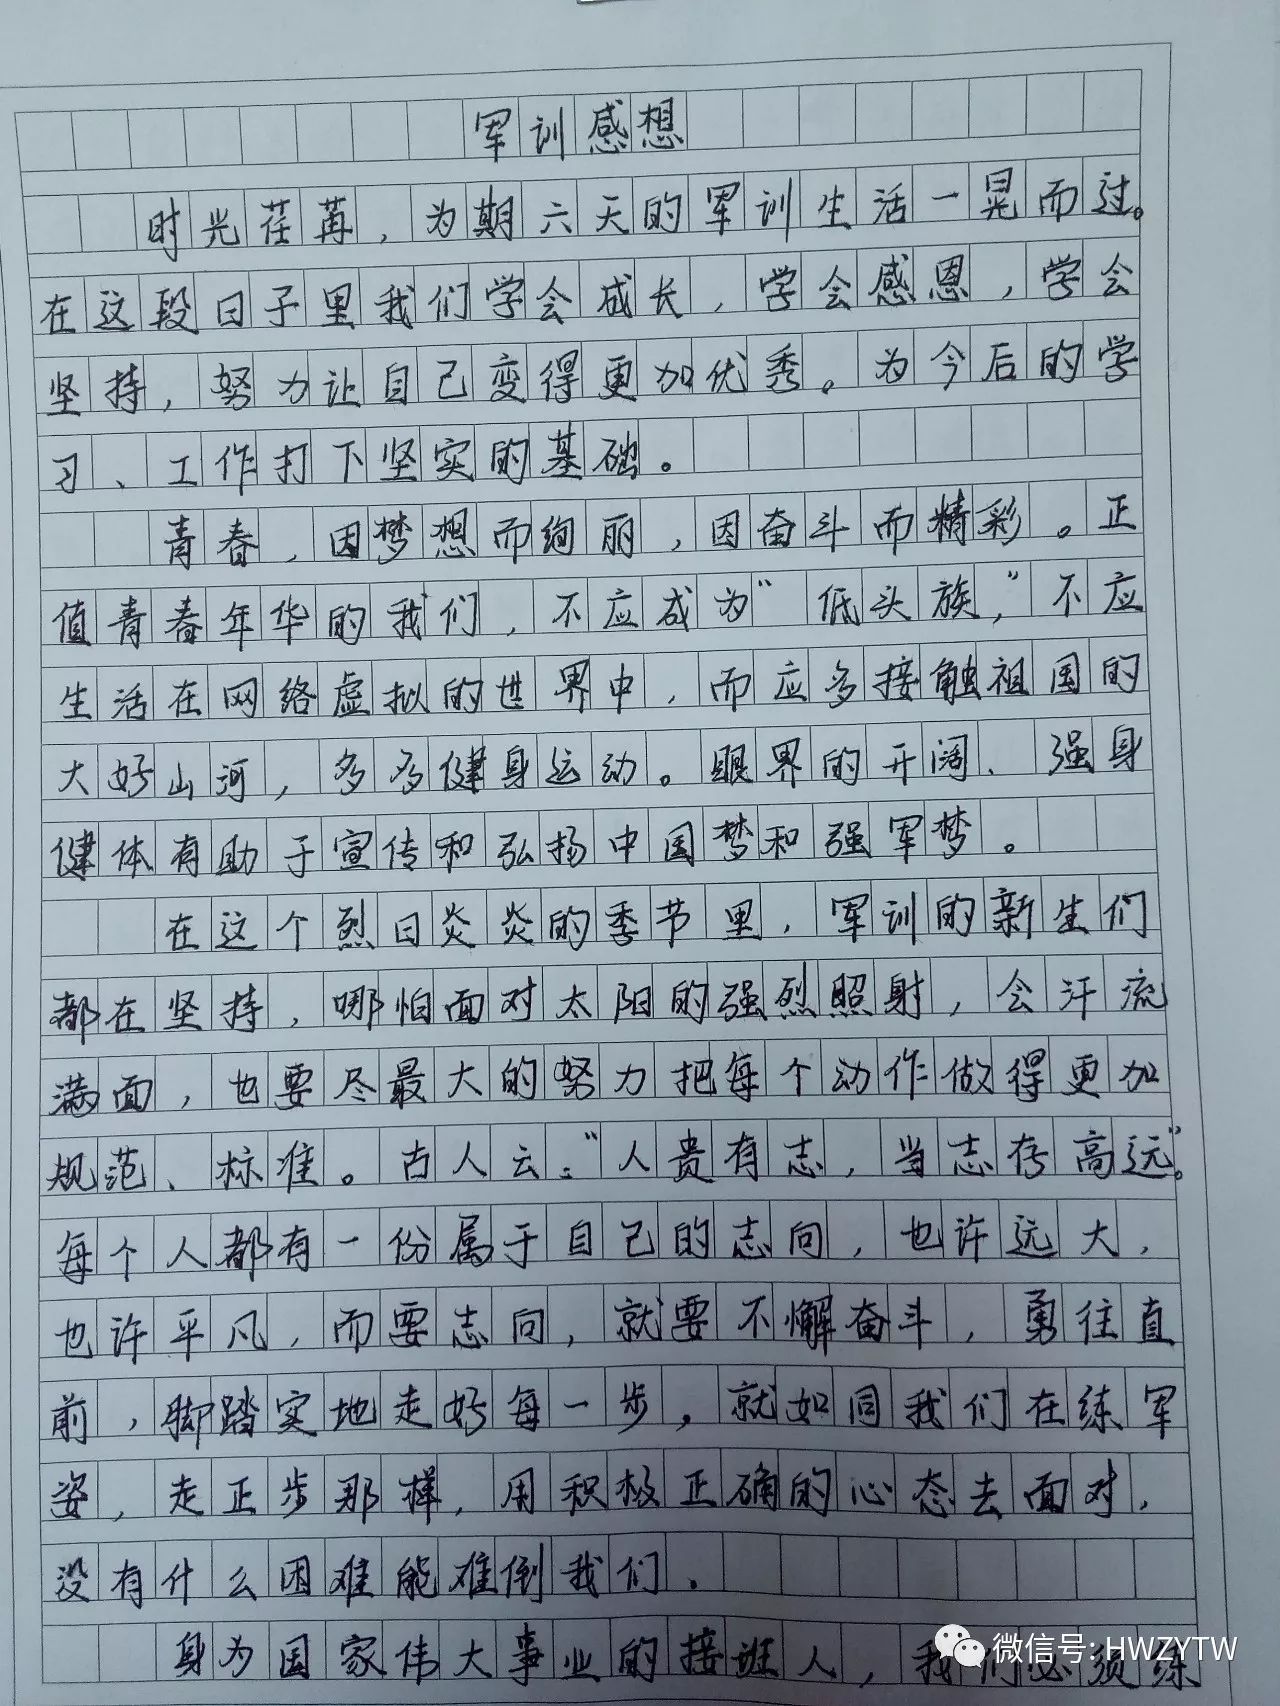 军训感想
时光荏苒，为期六天的军训生活一晃而过。
在这段日子里我们学会成长，学会感恩，学会
坚持，努力让自己变得更加优秀。为今后的学
习、工作打下坚实的基础。
青春，因梦想而绚丽，因奋斗而精彩。正
值青春年华的我们，不应成为“低头族，”不应
生活在网络虚拟的世界中，而应多接触祖国的
大好山河，多多健身运动。眼界的开阔、强身
健体有助于宣传和弘扬中国梦和强军梦。
在这个烈日炎炎的季节里，军训的新生们
都在坚持，哪怕面对太阳的强烈照射，会汗流
满面，也要尽最大的努力把每个动作做得更加
规范、标准。古人云：“人贵有志，当志存高远”。
每个人都有一份属于自己的志向，也许远大，
也许平凡，而要志向，就要不懈奋斗，勇往直
前，脚踏实地走好每一步，就如同我们在练军
姿，走正步那样，用积极正确的心态去面对，
没有什么困难能难倒我们．
身为国家伟大事业的接班人，我们必须练
微信号: HWZYTW